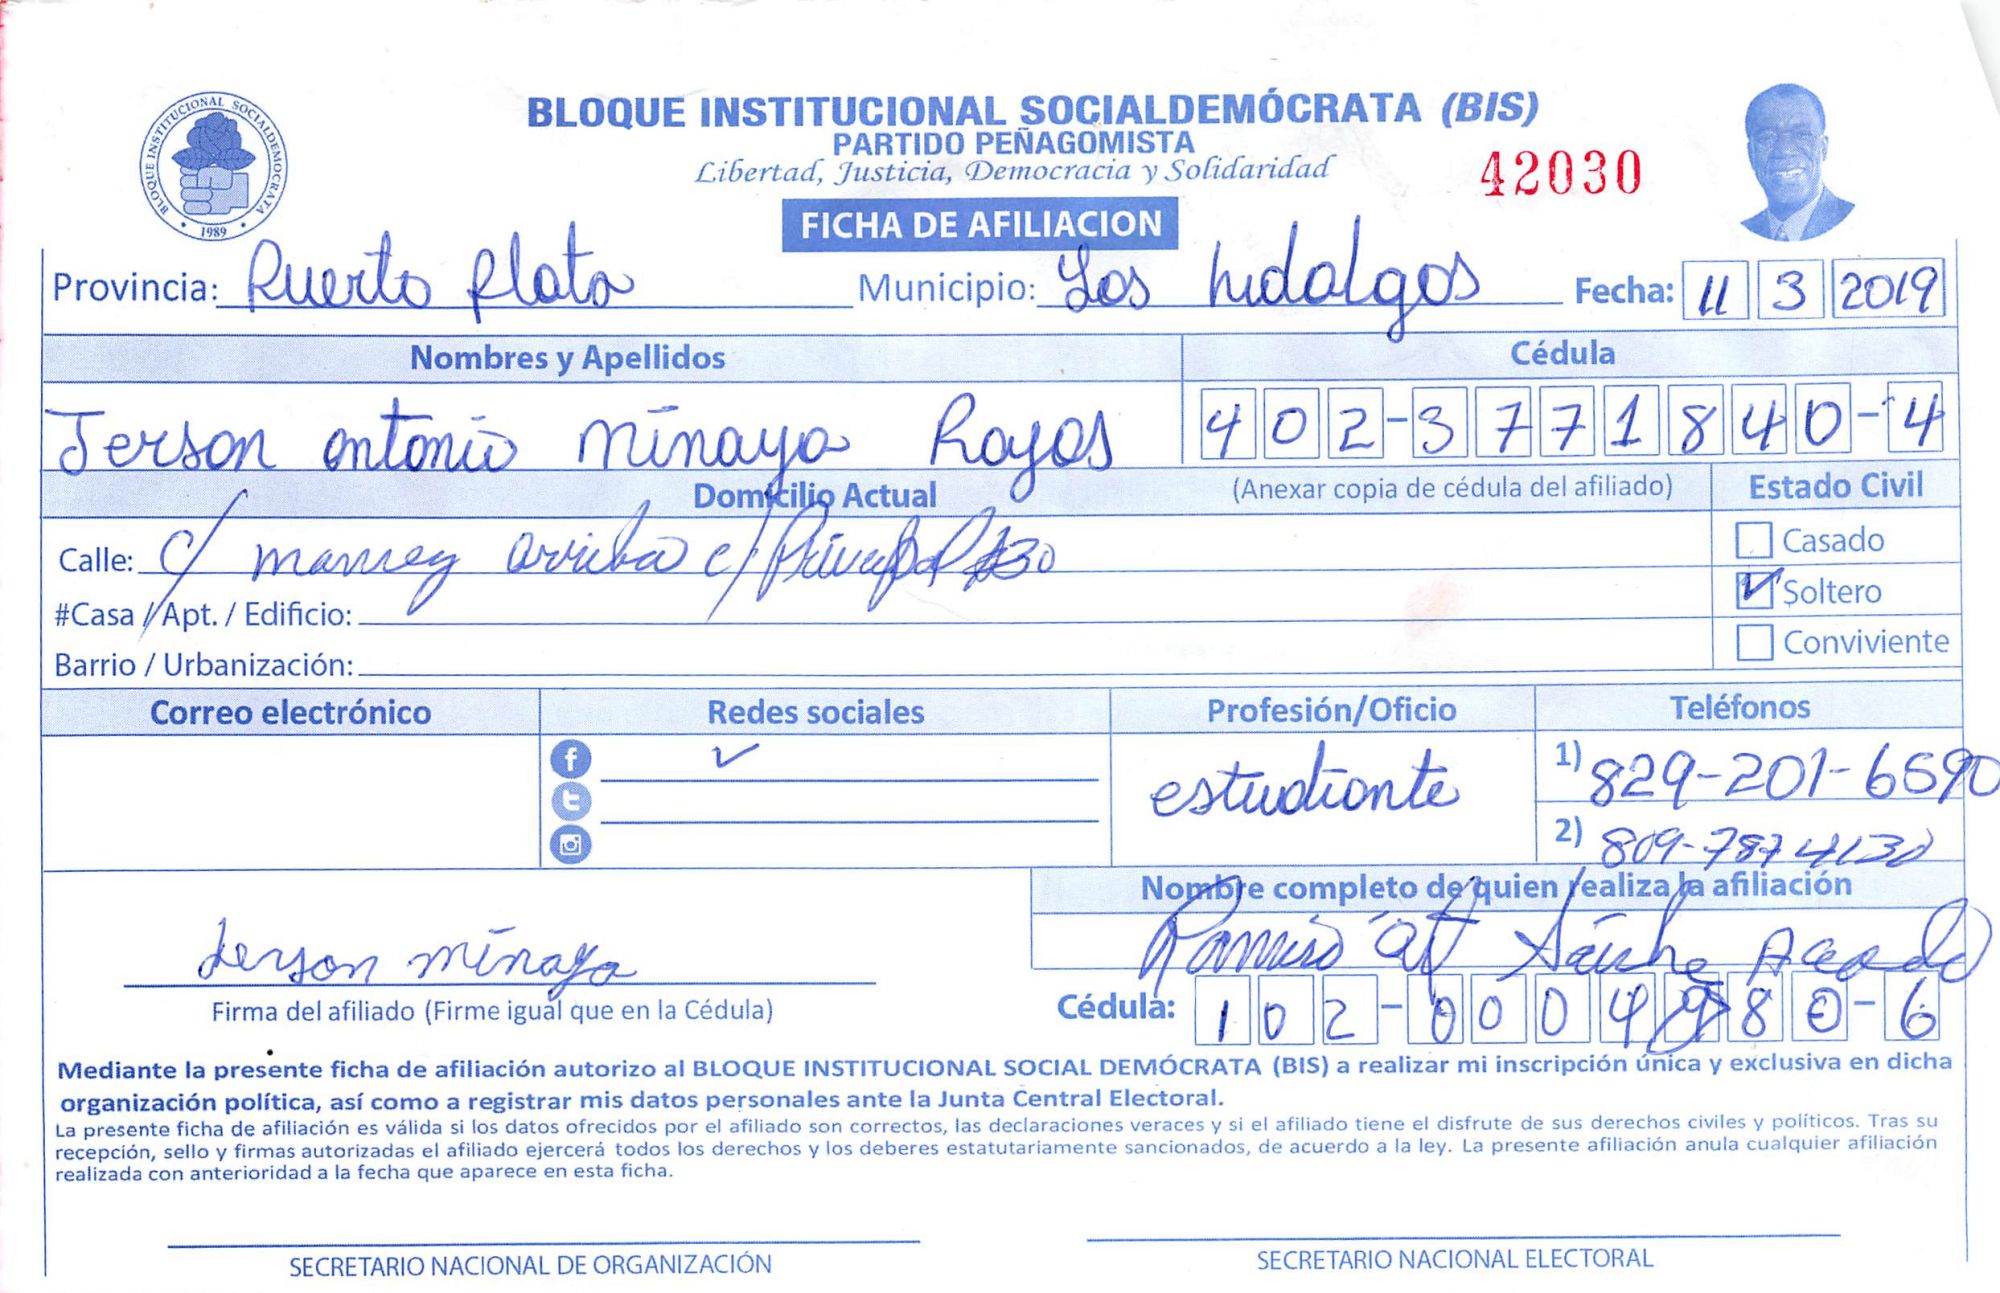 BLOQUE INSTITUCIONAL SOCIALDEMOCRATA
1989
BLOQUE INSTITUCIONAL SOCIALDEMÓCRATA (BIS)
PARTIDO PEÑAGOMISTA
Libertad, Justicia, Democracia y Solidaridad
42030
FICHA DE AFILIACION
Provincia: Puerto Plata Municipio: Los hidalgos Fecha: 11 3 2019
Nombres y Apellidos Cédula
Jerson antonio minaya Rojas 402-3771840-4
Domicilio Actual (Anexar copia de cédula del afiliado) Estado Civil
Calle: c/ mamey arriba c/ Principal #30 Casado
#Casa / Apt. / Edificio: Soltero
Barrio / Urbanización: Conviviente
Correo electrónico Redes sociales Profesión/Oficio Teléfonos
estudiante 1) 829-201-6590
2) 809-787 4130
Nombre completo de quien realiza la afiliación
Jerson minaya Ramiro
Firma del afiliado (Firme igual que en la Cédula) Cédula: 102-0004980-6
Mediante la presente ficha de afiliación autorizo al BLOQUE INSTITUCIONAL SOCIAL DEMÓCRATA (BIS) a realizar mi inscripción única y exclusiva en dicha
organización política, así como a registrar mis datos personales ante la Junta Central Electoral.
La presente ficha de afiliación es válida si los datos ofrecidos por el afiliado son correctos, las declaraciones veraces y si el afiliado tiene el disfrute de sus derechos civiles y políticos. Tras su
recepción, sello y firmas autorizadas el afiliado ejercerá todos los derechos y los deberes estatutariamente sancionados, de acuerdo a la ley. La presente afiliación anula cualquier afiliación
realizada con anterioridad a la fecha que aparece en esta ficha.
SECRETARIO NACIONAL DE ORGANIZACIÓN SECRETARIO NACIONAL ELECTORAL